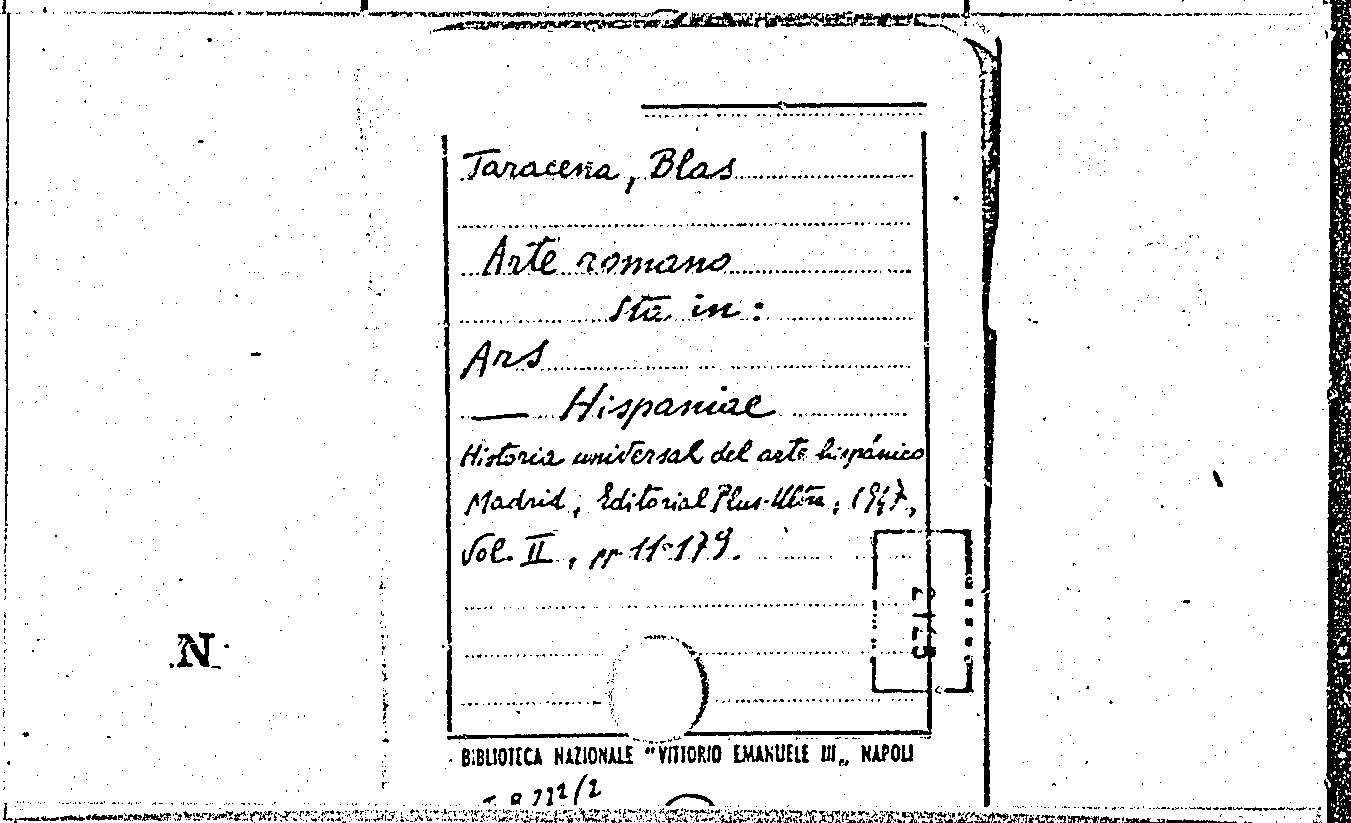 Taracena, Blas
Arte romano
Sta in:
Ars
— Hispaniae
Historia universal del arte hispánico
Madrid, Editorial Plus-Ultra, 1947,
Vol. II, pp 11-179.
N
BIBLIOTECA NAZIONALE "VITTORIO EMANUELE III„ NAPOLI